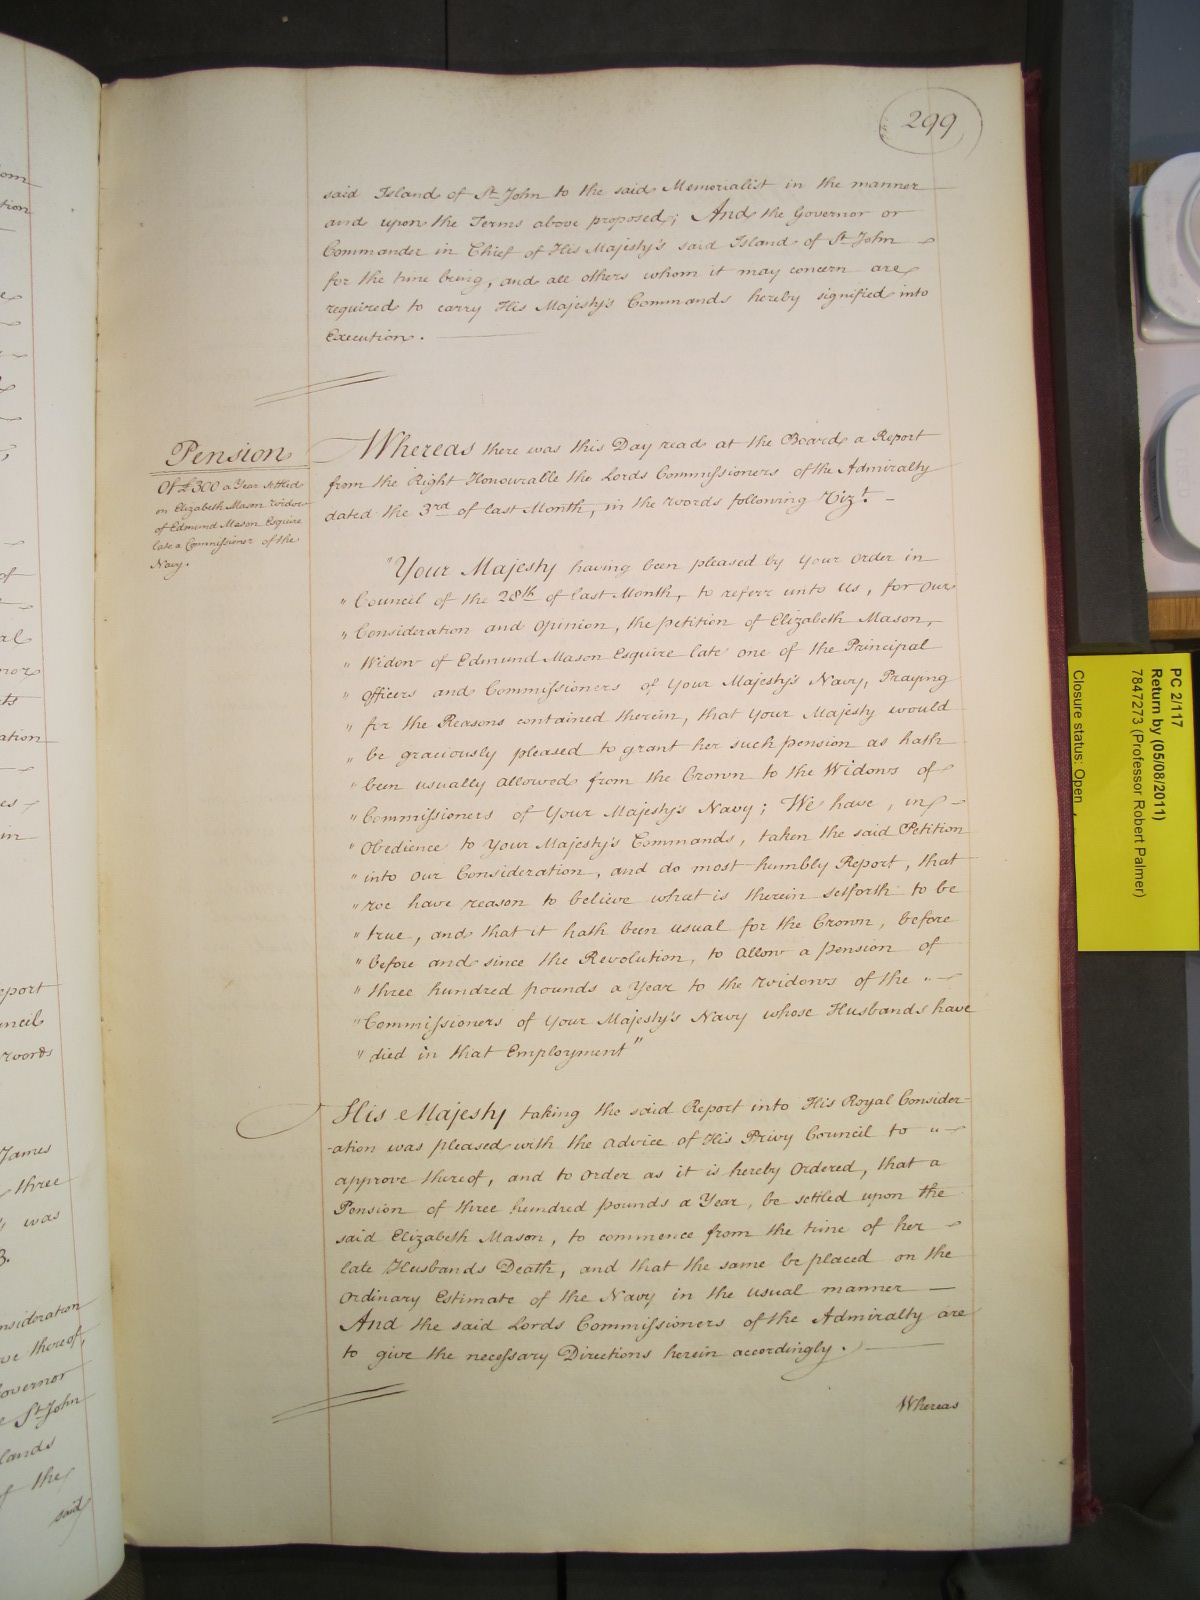 299
said Island of St. John to the said Memorialist in the manner
and upon the Terms above proposed; And the Governor or
Commander in Chief of His Majesty's said Island of St. John
for the time being, and all others whom it may concern are
required to carry His Majesty's Commands hereby signified into
Execution.
Pension
Of £300 a Year settled
on Elizabeth Mason Widow
of Edmund Mason Esquire
late a Commissioner of the
Navy.
Whereas there was this Day read at the Board a Report
from the Right Honourable the Lords Commissioners of the Admiralty
dated the 3rd of last Month, in the words following Vizt. -
"Your Majesty having been pleased by Your Order in
" Council of the 28th of last Month, to referr unto us, for our
" Consideration and Opinion, the petition of Elizabeth Mason,
" Widow of Edmund Mason Esquire late one of the Principal
" Officers and Commissioners of Your Majesty's Navy, Praying
" for the Reasons contained therein, that Your Majesty would
" be graciously pleased to grant her such pension as hath
" been usually allowed from the Crown to the Widows of
" Commissioners of Your Majesty's Navy; We have, in -
" Obedience to Your Majesty's Commands, taken the said Petition
" into our Consideration, and do most humbly Report, that
" we have reason to believe what is therein setforth to be
" true, and that it hath been usual for the Crown, before
" before and since the Revolution, to allow a pension of
" three hundred pounds a Year to the widows of the "-
" Commissioners of Your Majesty's Navy whose Husbands have
" died in that Employment"
His Majesty taking the said Report into His Royal Consider-
-ation was pleased with the advice of His Privy Council to "-
approve thereof, and to order as it is hereby Ordered, that a
Pension of three hundred pounds a Year, be settled upon the
said Elizabeth Mason, to commence from the time of her
late Husbands Death, and that the same be placed on the
Ordinary Estimate of the Navy in the usual manner —
And the said Lords Commissioners of the Admiralty are
to give the necessary Directions herein accordingly.
Whereas
PC 2/117
Return by (05/08/2011)
7847273 (Professor Robert Palmer)
Closure status: Open
tion
of
ation
in
James
three
was
3.
nsideration
thereof,
overnor
St. John
lands
of the
said